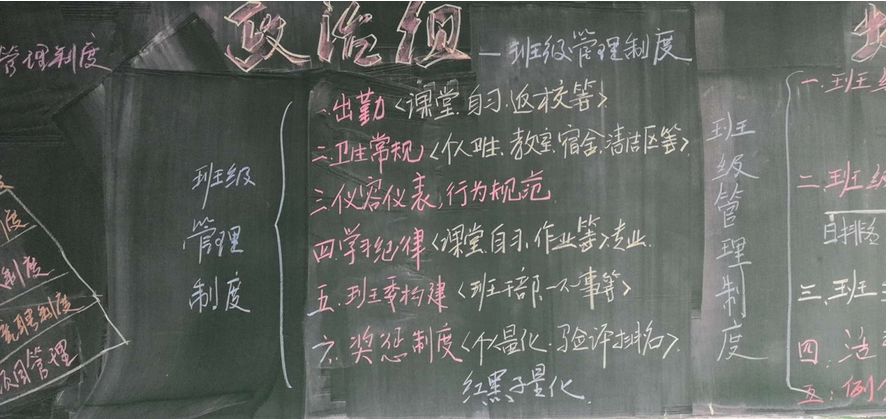 管理制度
度
制度
竞聘制度
项目管理
政治组 — 班级管理制度
班级
管理
制度
一.出勤<课堂.自习.返校等>
二.卫生常规<个人卫生.教室.宿舍.清洁区等>
三.仪容仪表,行为规范
四.学习纪律<课堂.自习.作业等>
五.班委构建<班干部.一人一事等>
六.奖惩制度<个人量化.
红黑予量化
班级管理制度
一.班级
二.班级
三.班
四.
五:例